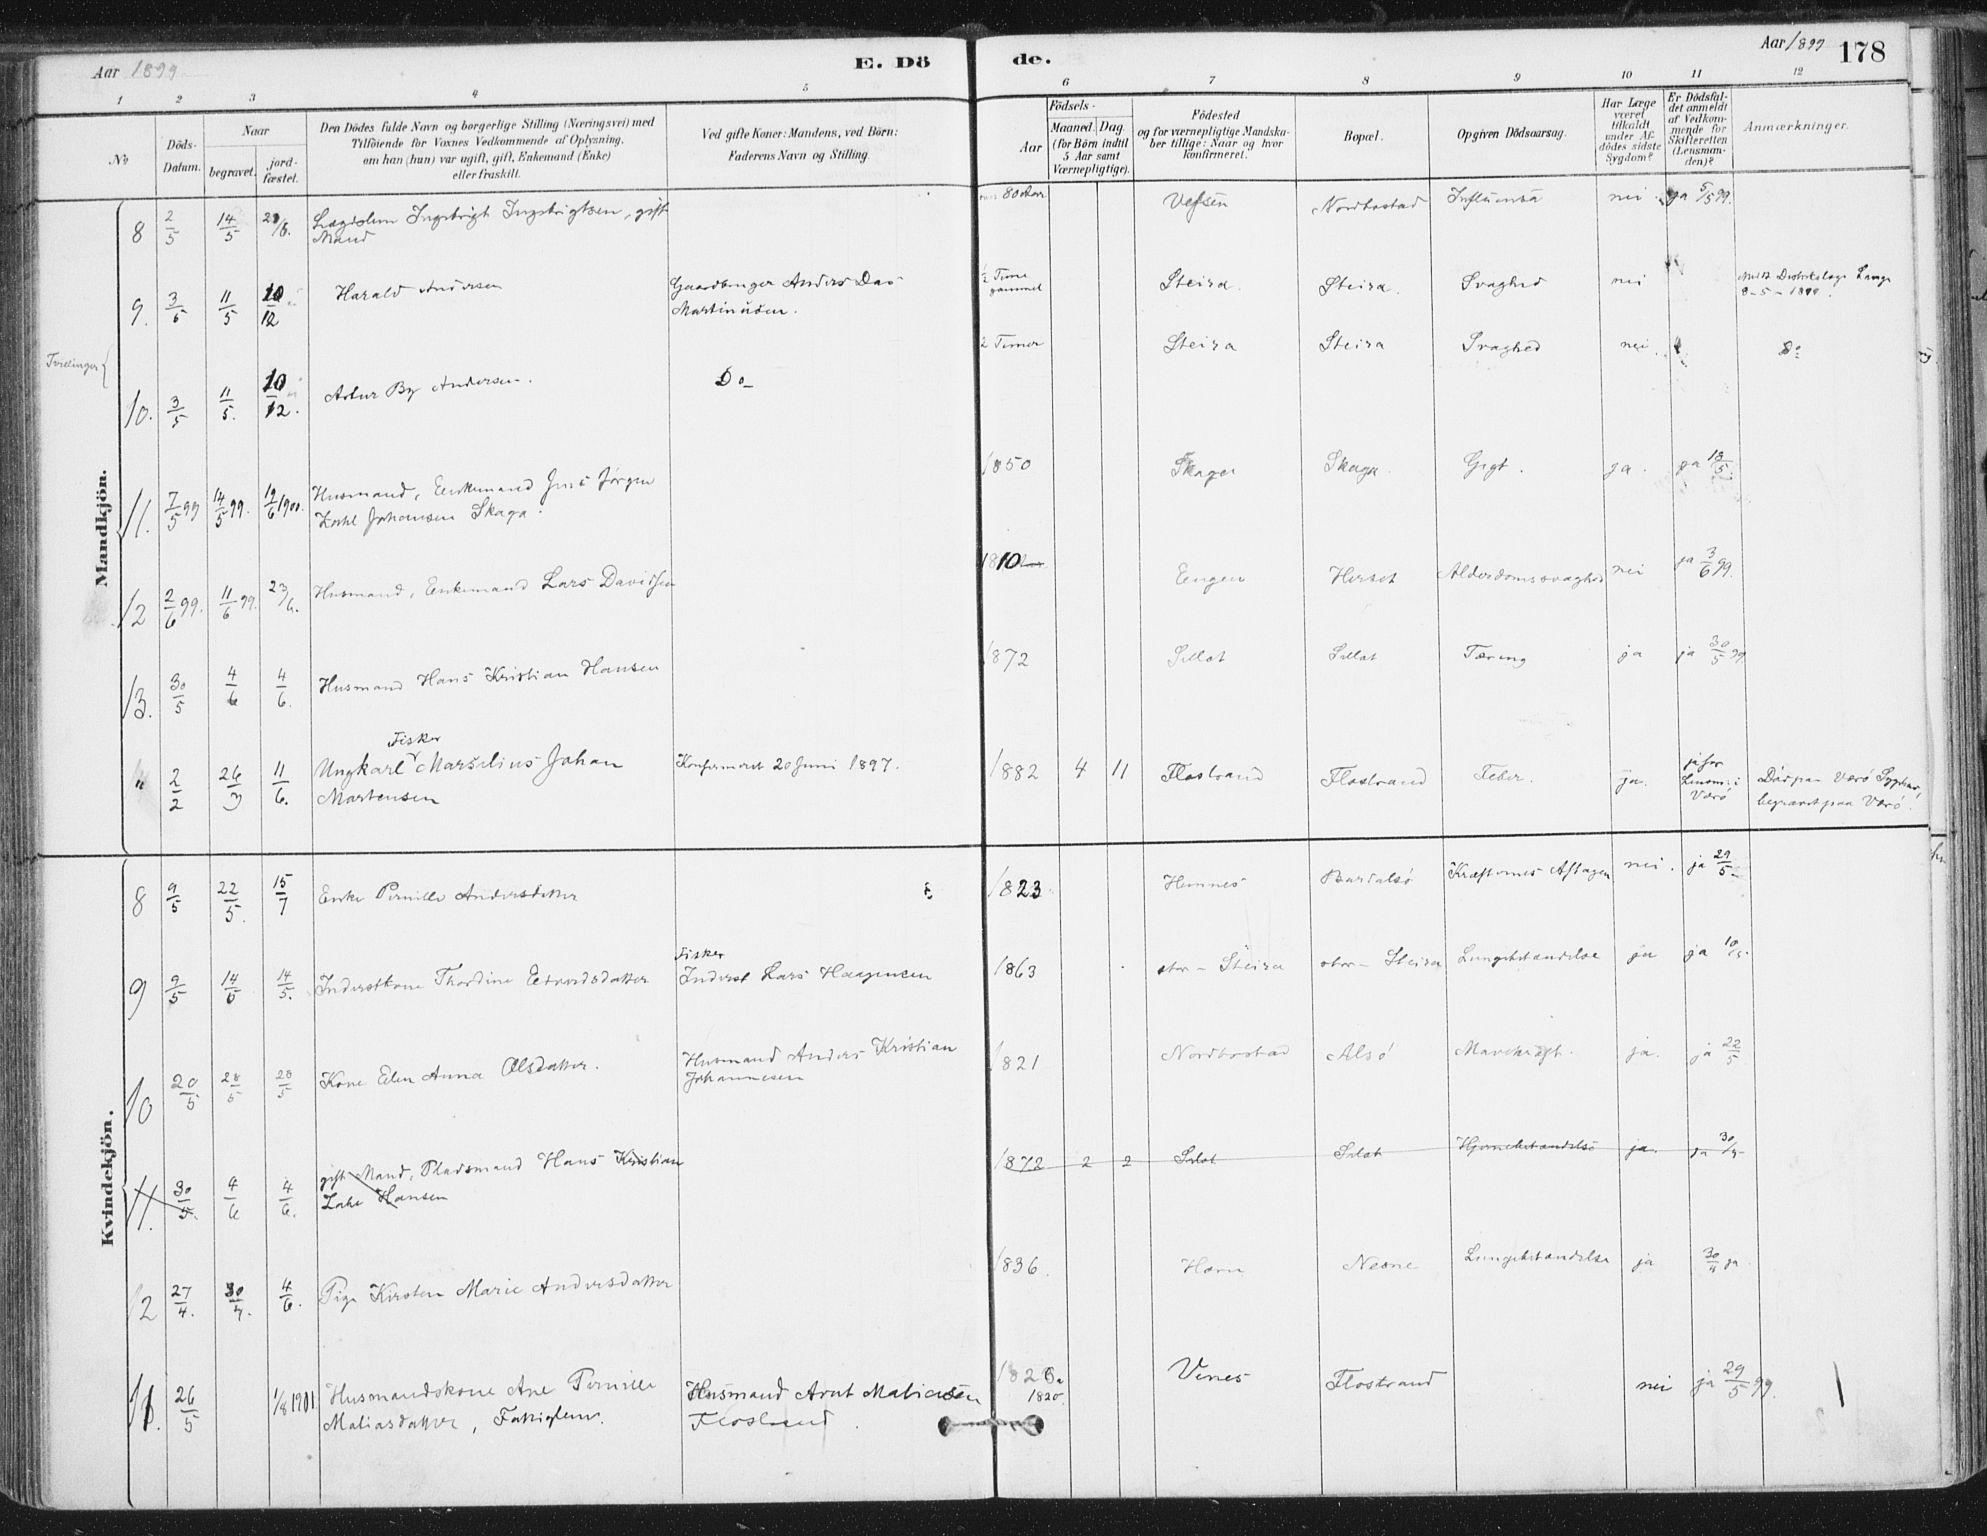 Aar 1899
E. Dö
de.
Aar 1899
178
1 2 3 4 5 6 7 8 9 10 11 12
No
Döds-
Datum.
Naar
begravet.
jord-
fæstet.
Den Dödes fulde Navn og borgerlige Stilling (Næringsvei) med
Tilföiende for Voxnes Vedkommende af Oplysning,
om han (hun) var ugift, gift, Enkemand (Enke)
eller fraskilt.
Ved gifte Koner: Mandens, ved Börn:
Faderens Navn og Stilling.
Födsels-
Aar
Maaned. Dag.
(for Börn indtil
5 Aar samt
Værnepligtige).
Födested
og for værnepligtige Mandska-
ber tillige: Naar og hvor
konfirmeret.
Bopæl.
Opgiven Dödsaarsag.
Har Læge
været
tilkaldt
under Af-
dödes sidste
Sygdom?
Er Dödsfal-
det anmeldt
af Vedkom-
mende for
Skifteretten
(Lensman-
den)?
Anmærkninger.
Mandkjön.
8 2/5 14/5 Lægdslem Ingebrigt Ingebrigtsen, gift 80 Aar Vefsen Nordbostad Influensa nei ja 5/5 99.
Mand
9. 3/5 11/5 10/12 Harald Andersen Gaardbruger Anders Das ½ Time Steira. Steira. Svaghed nei
Martinusen. gammel 8-5-1899.
Tvillinger
10. 3/5 11/5. 10/12. Artur By Andersen. Do 2 Timer Steira Steira Svaghed nei. Do
11. 7/5 99 14/5 99. 12/6 1900. Husmand, Enkemand Jens Jørgen 1850 Skaga Skaga. Gigt. ja. ja 13/5.
Johansen Skaga.
12 2/6 99. 11/6 99. 23/6. Husmand, Enkemand Lars Davidsen 1810 Engen Herset Alderdomssvaghed nei ja 3/6 99.
13. 30/5 4/6 4/6. Husmand Hans Kristian Hansen 1872 Sillat Sillat Tæring ja ja 30/5 99
Fisker
" 2/2 26/3 11/6. Ungkarl Marselius Johan Konfirmeret 20 Juni 1897. 1882 4 11 Flostrand Flostrand Feber. ja. ja for Lensm. i Værö Död paa Værö Sygehus,
Martensen begravet paa Værö.
Kvindekjön.
8 9/5 22/5. 15/7 Enke Pernille Andersdatter 1823 Hemnes Bardalsö Kræfternes Aftagen nei. ja 29/5
Fisker
9 9/5 14/5 14/5. Inderstkone Thordine Edvardsdatter Inderst Lars Haagensen 1863 stor-Steira stor-Steira Lungebetændelse ja ja 10/5.
10 20/5 28/5 28/5 Kone Elen Anna Olsdatter. Husmand Anders Kristian 1821 Nordbostad Alsö Mavekræft. ja. ja 22/5
Johannesen
11. 30/5. 4/6 4/6. gift Mand, Pladsmand Hans Kristian 1872 2 2 Silat Silat Hjernebetændelse ja. ja 30/5
Hansen
12 27/4. 30/4. 4/6. Pige Kirsten Marie Andersdatter 1836. Havn Nesne Lungebetændelse ja 30/4 ja
11. 26/5 1/8 1901 Husmandskone Ane Pernille Husmand Arnt Matiassen 1820 Vines Flostrand nei ja 29/5 99.
Matiasdatter, Fattiglem. Flostrand. 1820.